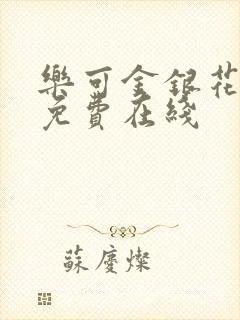 樂可金銀花
免費在綫
蘇慶燦